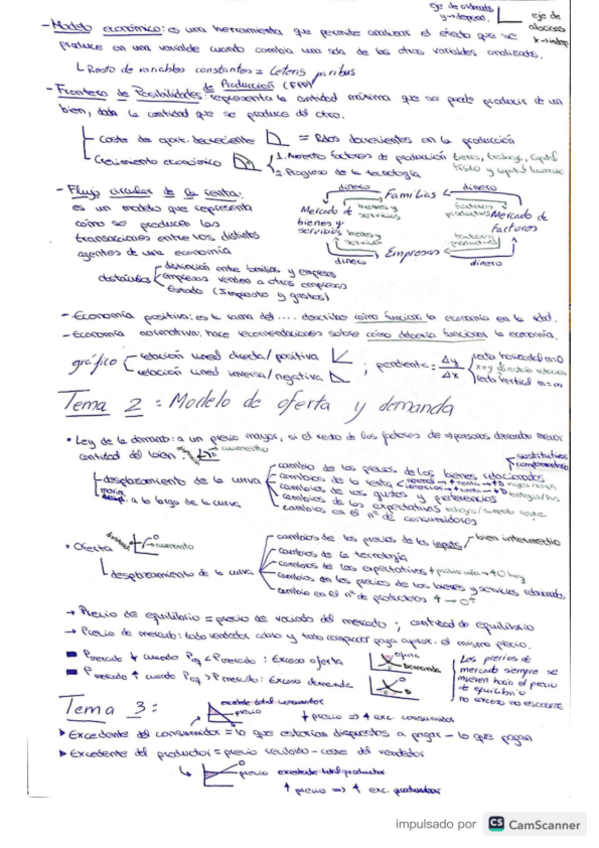 eje de ordenadas
y→depend.
eje de abscisas
x→indep
- Modelo económico: es una herramienta que permite analizar el efecto que se
produce en una variable cuando cambia una sola de las otras variables analizadas.
Resto de variables constantes = Ceteris paribus
- Frontera de Posibilidades de Producción (FPP)
representa la cantidad máxima que se puede producir de un
bien, dada la cantidad que se produce del otro.
Coste de oport. decreciente = Rdos decrecientes en la producción
Crecimiento económico
1. Aumento factores de producción tierra, trabajo, capital
físico y capital humano
2. Progreso de la tecnología
- Flujo circular de la renta:
es un modelo que representa
cómo se producen las
transacciones entre los distintos
agentes de una economía
dinero Familias dinero
Mercado de bienes y servicios
bienes y servicios
factores productivos
Mercado de Factores
bienes y servicios
factores productivos
dinero Empresas dinero
obstáculos
distinción entre familias y empresas
empresas venden a otras empresas
Estado (Impuesto y gastos)
- Economía positiva: es la rama del .... describe cómo funciona la economía en la rdad.
- Economía normativa: hace recomendaciones sobre cómo debería funcionar la economía.
gráfico
relación lineal directa/positiva
relación lineal inversa/negativa
; pendiente = Δy/Δx
recta horizontal m=0
recta vertical m=∞
Tema 2: Modelo de oferta y demanda
• Ley de la demanda: a un precio mayor, si el resto de los factores de ⇒ personas demandan menor
cantidad del bien.
aumento
sustitutivos
complementarios
desplazamiento de la curva
mov. a lo largo de la curva
cambio de los precios de los bienes relacionados
cambios de la renta
cambios de los gustos y preferencias
cambios de las expectativas
cambios en el nº de consumidores
• Oferta
aumento
desplazamiento de la curva
cambios de los precios de los inputs / bien intermedio
cambios de la tecnología
cambios de las expectativas
cambios en los precios de los bienes y servicios relacionados
cambio en el nº de productores ↑ → O↑
→ Precio de equilibrio = precio de vaciado del mercado ; cantidad de equilibrio
→ Precio de mercado: todo vendedor cobra y todo comprador paga aprox. el mismo precio.
P mercado ↓ cuando Peq < Pmercado: Exceso oferta
P mercado ↑ cuando Peq > Pmercado: Exceso demanda
Oferta
Demanda
O
D
Los precios de
mercado siempre se
mueven hacia el precio
de equilibrio
no exceso no escasez
Tema 3:
excedente total consumidor
precio
↓ precio ⇒ ↑ exc. consumidor
▸ Excedente del consumidor = lo que estarían dispuestos a pagar - lo que pagan
▸ Excedente del productor = precio recibido - coste del vendedor
O
precio
excedente total productor
↑ precio ⇒ ↑ exc. productor
impulsado por CS CamScanner